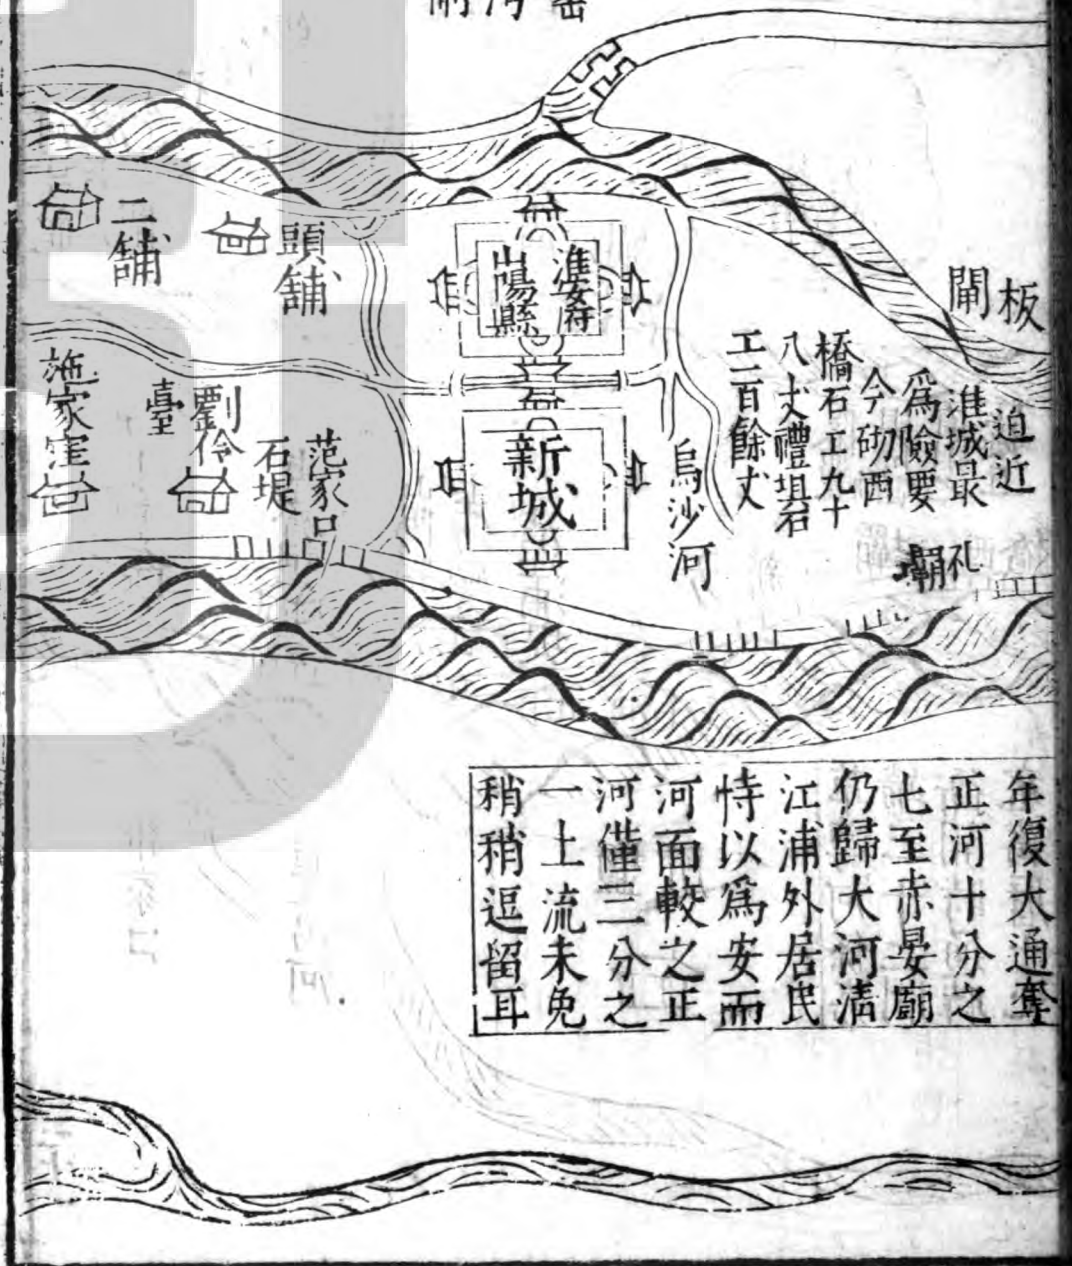 板
閘
迫近
淮城最
為險要
今砌西
橋石工九十
八丈禮垻石
工二百餘丈
禮
壩
烏沙河
淮安府
山陽縣
新城
頭舖
二舖
范家口
石堤
劉伶
臺
施家窪
年復大通奪
正河十分之
七至赤晏廟
仍歸大河清
江浦外居民
恃以為安而
河面較之正
河僅三分之
一土流未免
稍稍逗留耳